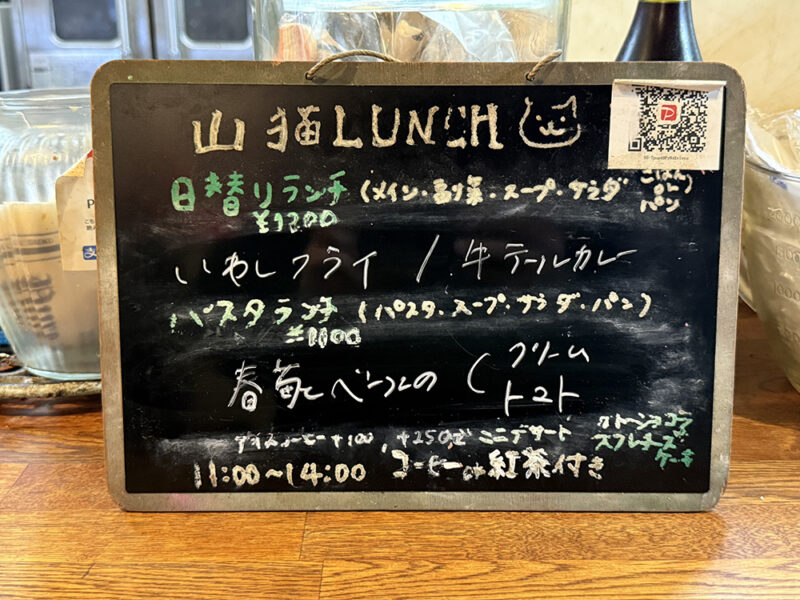 山猫LUNCH
日替りランチ (メイン・副菜・スープ・サラダ ごはん or パン)
¥1200
いわしフライ / 牛テールカレー
パスタランチ (パスタ・スープ・サラダ・パン)
¥1100
春菊とベーコンの ( クリーム
トマト
アイスコーヒー+100, +250でミニデザート
ガトーショコラ
スフレチーズケーキ
11:00~14:00 コーヒーor紅茶付き